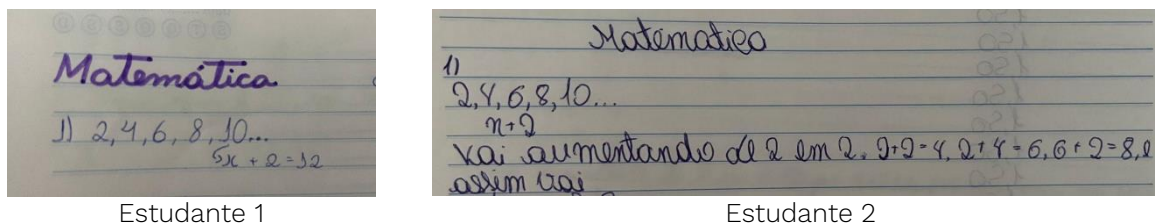 Matemática
1) 2, 4, 6, 8, 10...
5x + 2 = 12
Estudante 1
Matematica
1)
2, 4, 6, 8, 10...
n+2
Vai aumentando de 2 em 2. 2+2=4, 2+4=6, 6+2=8, e
assim vai
Estudante 2